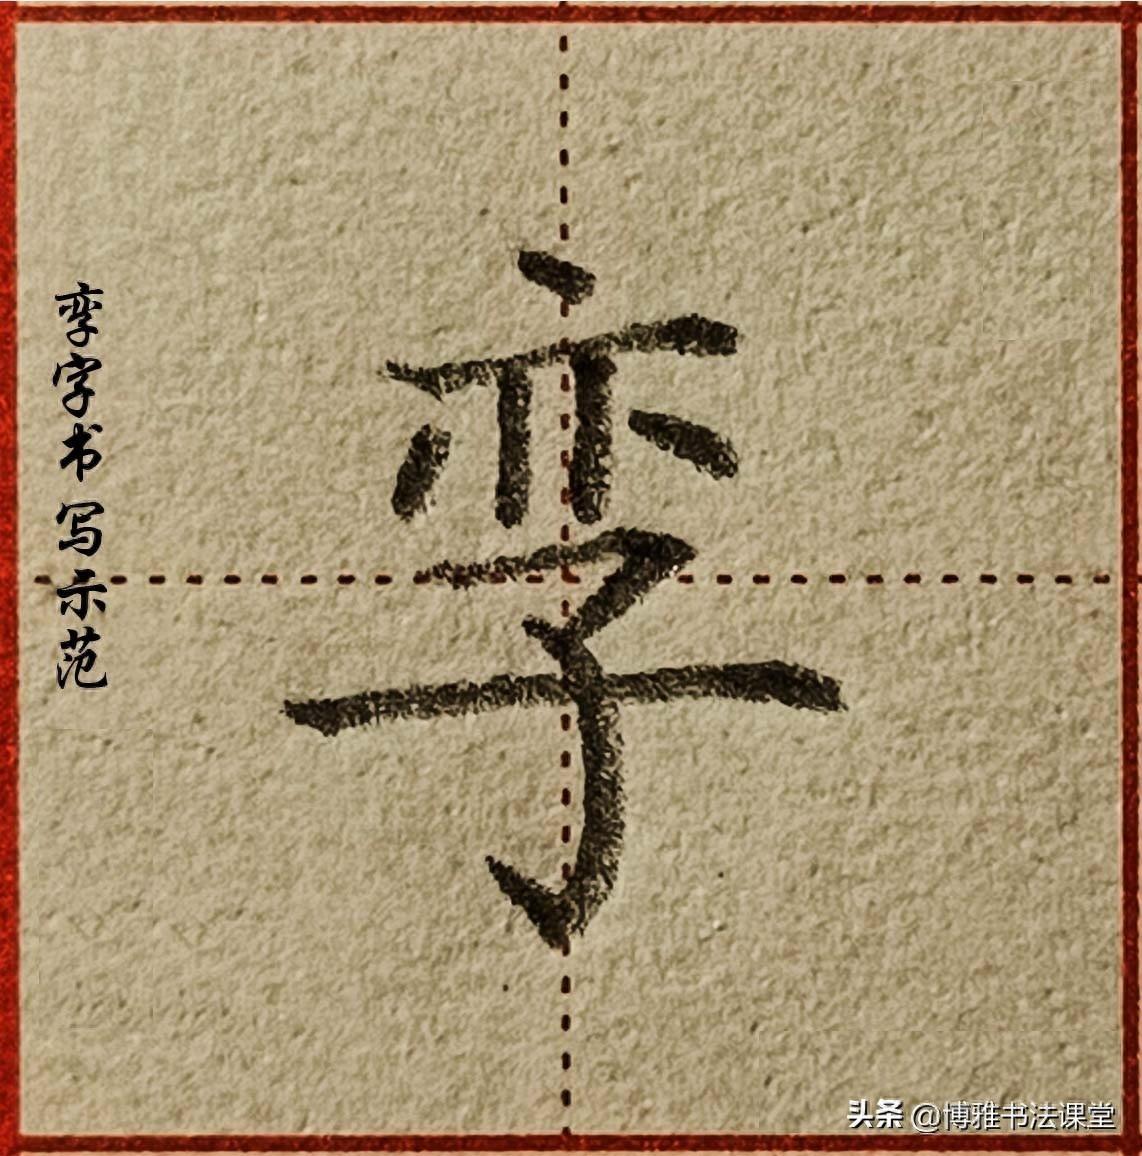 孪
孪字书写示范
头条 @博雅书法课堂